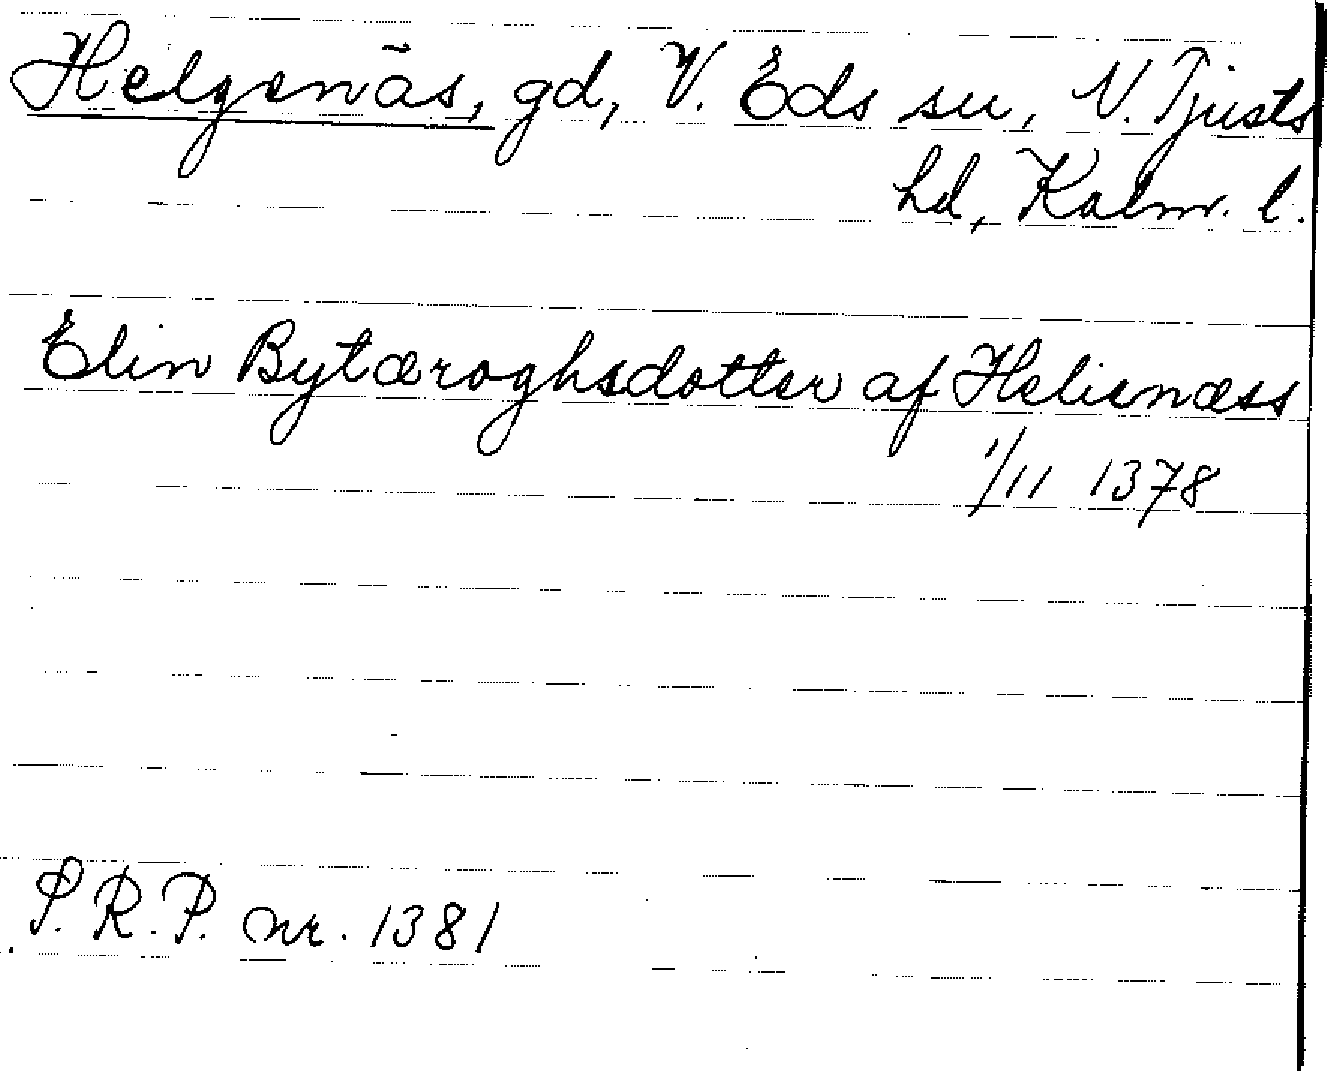 Helgenäs, gd, V. Eds sn, N. Tjusts
hd, Kalm. l.
Elin Bytæroghsdotter af Helienæss
1/11 1378
P.R.P. nr. 1381